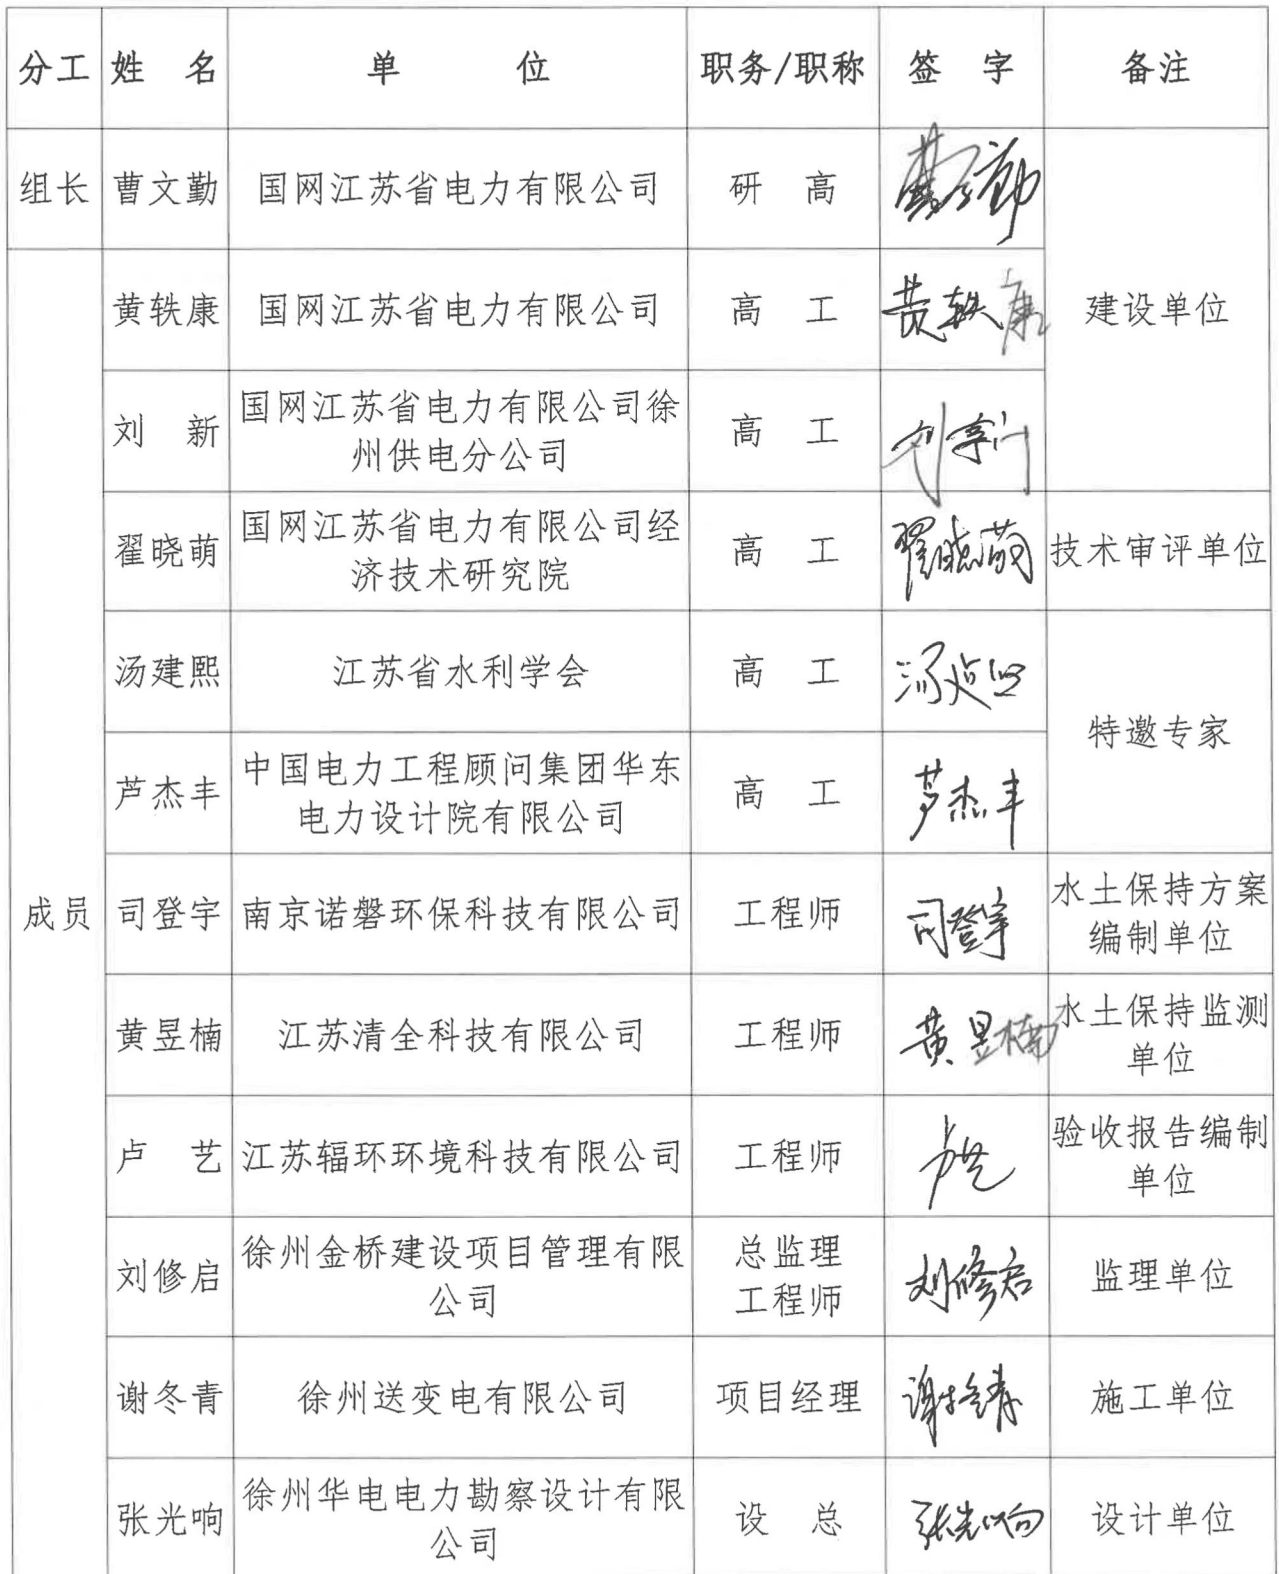 分工 姓 名 单 位 职务/职称 签 字 备注
组长 曹文勤 国网江苏省电力有限公司 研 高 曹文勤
黄轶康 国网江苏省电力有限公司 高 工 黄轶康 建设单位
刘 新 国网江苏省电力有限公司徐
州供电分公司 高 工 刘新
翟晓萌 国网江苏省电力有限公司经
济技术研究院 高 工 翟晓萌 技术审评单位
汤建熙 江苏省水利学会 高 工 汤建熙
特邀专家
芦杰丰 中国电力工程顾问集团华东
电力设计院有限公司 高 工 芦杰丰
成员 司登宇 南京诺磐环保科技有限公司 工程师 司登宇 水土保持方案
编制单位
黄昱楠 江苏清全科技有限公司 工程师 黄昱楠 水土保持监测
单位
卢 艺 江苏辐环环境科技有限公司 工程师 卢艺 验收报告编制
单位
刘修启 徐州金桥建设项目管理有限
公司 总监理
工程师 刘修启 监理单位
谢冬青 徐州送变电有限公司 项目经理 谢冬青 施工单位
张光响 徐州华电电力勘察设计有限
公司 设 总 张光响 设计单位